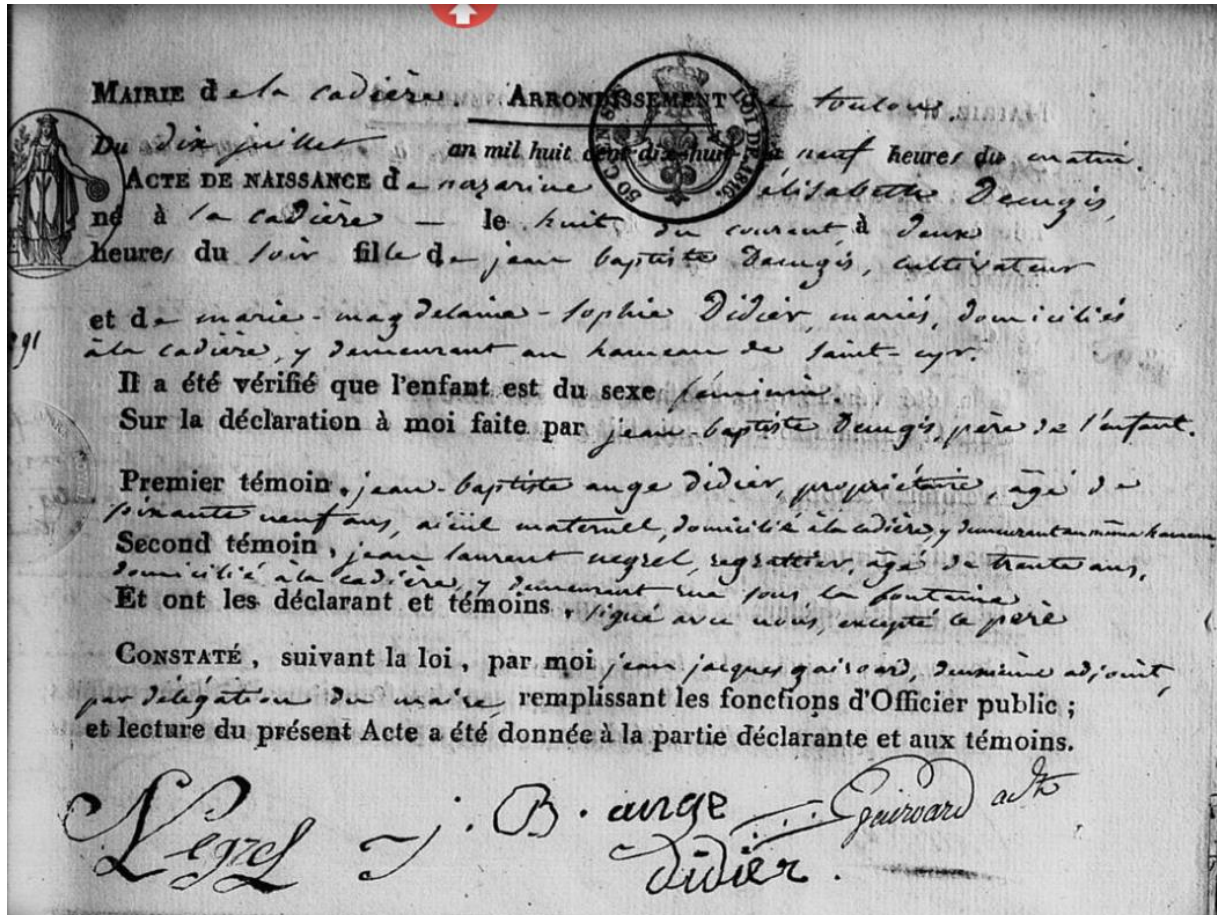 Mairie de la cadière. Arrondissement de toulon.
30 CEN
LOI DE 1816.
Du dix juillet an mil huit cent-dix-huit à neuf heures du matin.
Acte de naissance de nazarine élisabeth Daugis,
né à la cadière — le huit du courant, à deux
heures du soir fille de jean baptiste Daugis, cultivateur
et de marie-magdelaine-sophie Didier, mariés, domiciliés
à la cadière, y demeurant au hameau de saint-cyr.
91
Il a été vérifié que l'enfant est du sexe féminin.
Sur la déclaration à moi faite par jean-baptiste Daugis, père de l'enfant.
Premier témoin, jean-baptiste ange didier, propriétaire, âgé de
soixante neuf ans, aïeul maternel, domicilié à la cadière, y demeurant au même hameau
Second témoin, jean laurent negrel, regrattier, âgé de trente ans,
domicilié à la cadière, y demeurant rue sous la fontaine
Et ont les déclarant et témoins, signé avec nous, excepté le père
Constaté, suivant la loi, par moi jean jacques gairoard, deuxième adjoint,
par délégation du maire, remplissant les fonctions d'Officier public ;
et lecture du présent Acte a été donnée à la partie déclarante et aux témoins.
Negrel j. B. ange didier. Gairoard adt